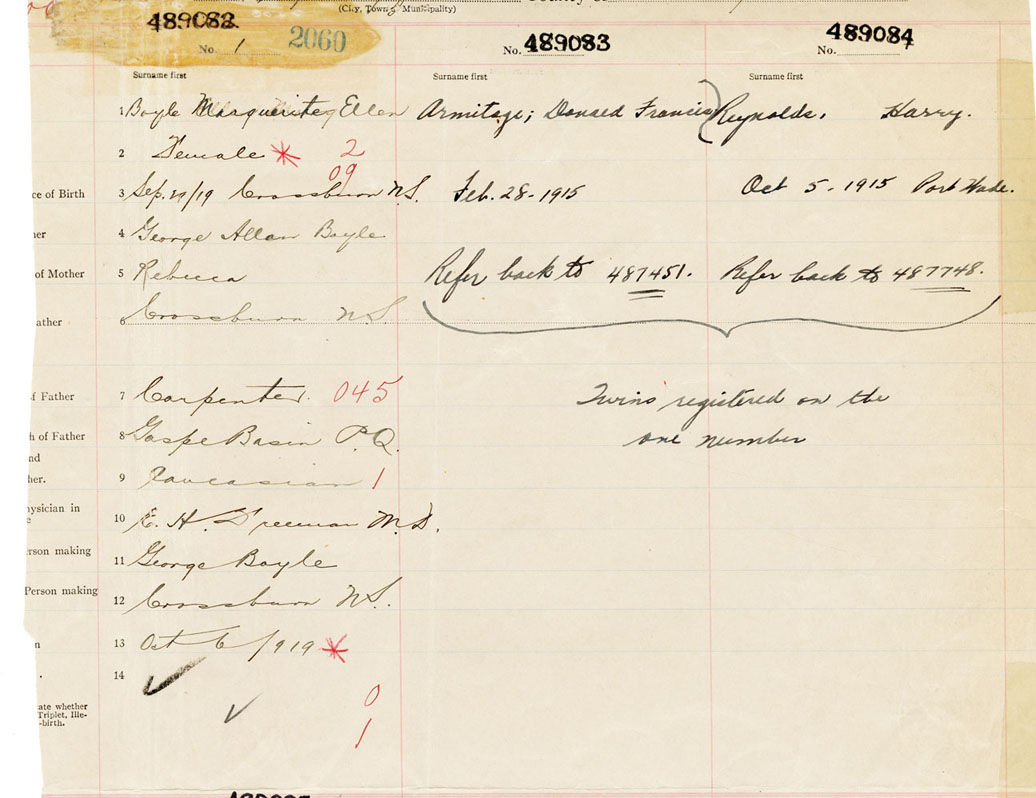 (City, Town, Municipality)
489082
No. 1 2060
No. 489083
489084
No.
Surname first
Surname first
Surname first
1 Boyle Marguerite Ellen
Armitage; Donald Francis
Reynolds, Harry.
2 Female * 2
09
ce of Birth
3 Sep. 29/19 Crossburn N.S.
Feb. 28 - 1915
Oct 5 - 1915 Port Wade.
her
4 George Allan Boyle
of Mother
5 Rebecca
Refer back to 487451.
Refer back to 487748.
ather
6 Crossburn N.S.
f Father
7 Carpenter. 045
Twins registered on the
h of Father
8 Gaspe Basin P.Q.
one number
nd
her.
9 Caucasian 1
hysician in
e
10 E. H. Freeman M.D.
rson making
11 George Boyle
Person making
12 Crossburn N.S.
n
13 Oct 6/1919 *
14
0
ate whether
Triplet, Ille-
-birth.
1